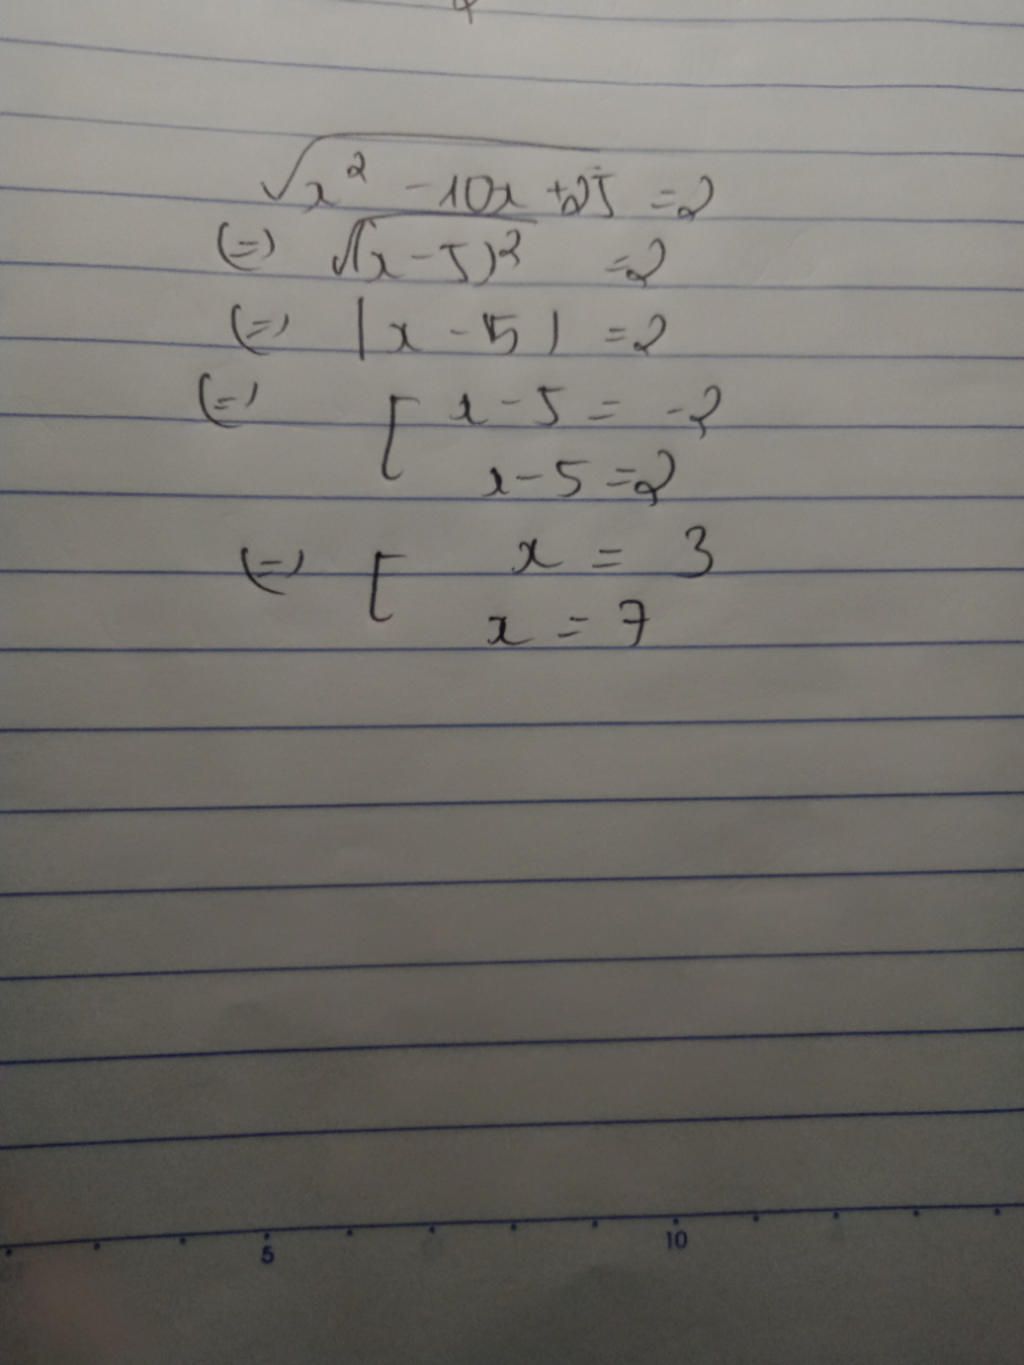 √(x² - 10x + 25) = 2
(=) √(x - 5)² = 2
(=) |x - 5| = 2
(=) [ x - 5 = -2
x - 5 = 2
(=) [ x = 3
x = 7
5 10